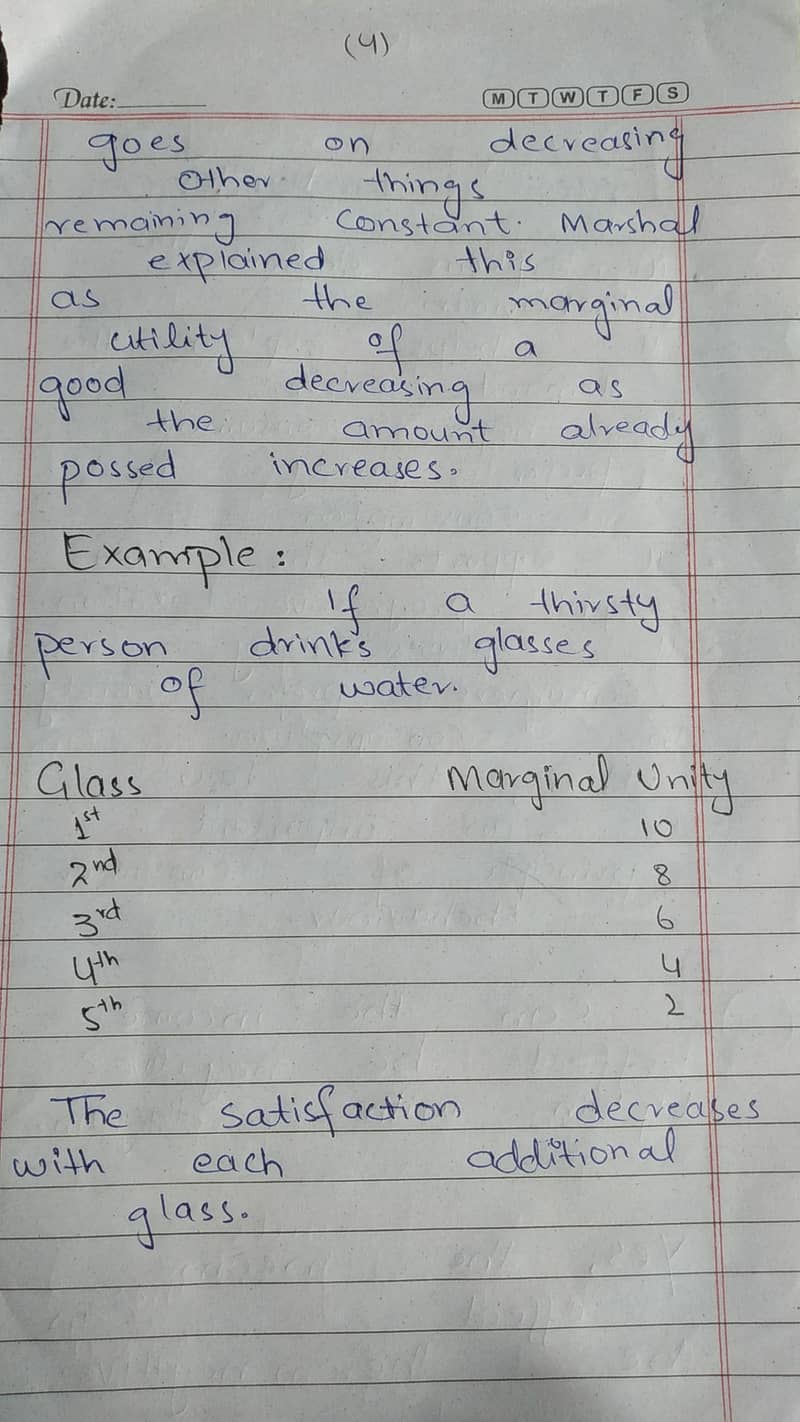 (4)
Date: M T W T F S
goes on decreasing
Other things
remaining Constant. Marshal
explained this
as the marginal
utility of a
good decreasing as
the amount already
possed increases.
Example :
If a thirsty
person drinks glasses
of water.
Glass Marginal Unity
1st 10
2nd 8
3rd 6
4th 4
5th 2
The satisfaction decreases
with each additional
glass.